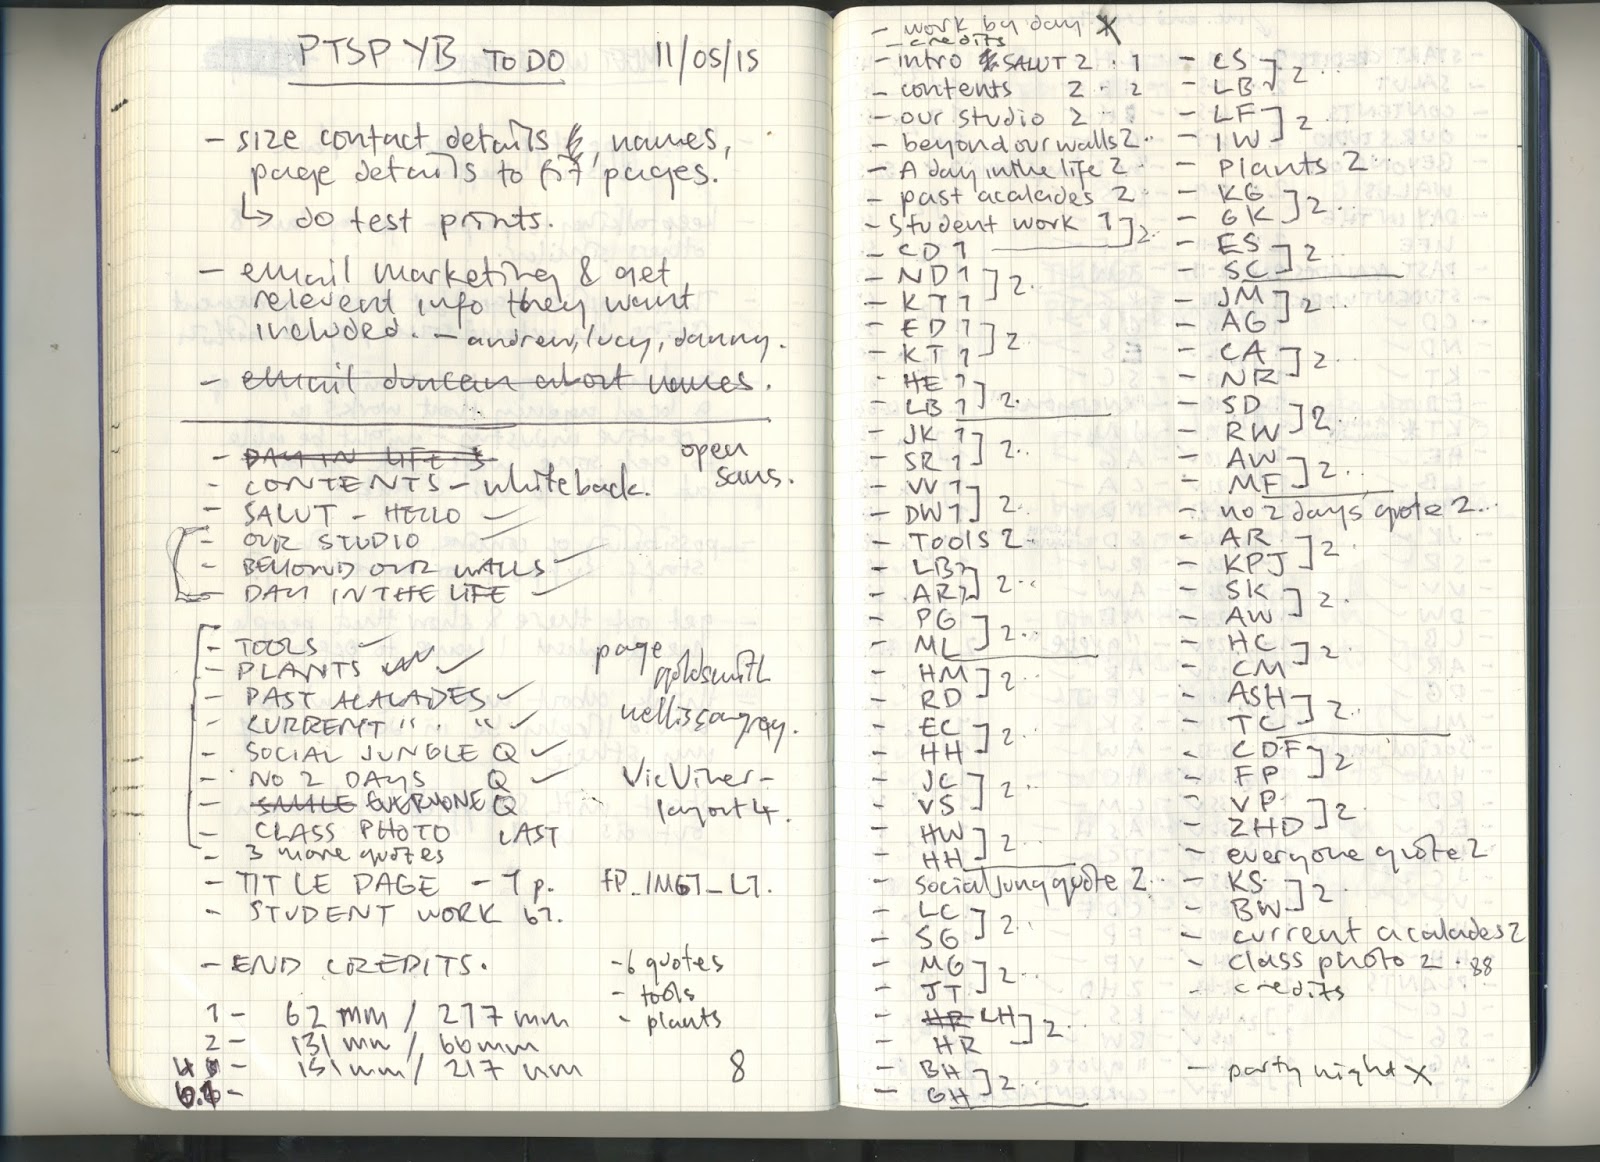 PTSP YB TO DO 11/05/15
- size contact details, names,
page details to fit pages.
↳ do test prints.
- email marketing & get
relevent info they want
included. - andrew, lucy, danny.
- email duncan about names.
- DAY IN LIFE
- CONTENTS - white back.
open
sans.
- SALUT - HELLO
- OUR STUDIO
- BEYOND OUR WALLS
- DAY IN THE LIFE
- TOOLS ✓
- PLANTS ✓
- PAST ACALADES ✓
- CURRENT " " ✓
- SOCIAL JUNGLE Q ✓
- NO 2 DAYS Q ✓
- EVERYONE Q
- CLASS PHOTO LAST
- 3 more quotes
- TITLE PAGE - 1 p.
- STUDENT WORK 67.
page
goldsmith
Vic Viner -
layout 4.
FP_IMG7_L7.
- END CREDITS.
- 6 quotes
- tools
- plants
1 - 62 mm / 217 mm
2 - 131 mm / 66 mm
4 - 131 mm / 217 mm
8
- work by day X
- credits
- intro SALUT 2 . 1
- contents 2 . 2
- our studio 2 .
- beyond our walls 2 ..
- A day in the life 2 .
- past acalades 2 .
- Student work 1 ] 2..
- CD 1
- ND 1 ] 2.
- KT 1
- ED 1 ] 2.
- KT 1
- HE 1 ] 2.
- LB 1
- JK 1 ] 2..
- SR 1
- VV 1 ] 2.
- DW 1
- TOOLS 2 .
- LB ] 2..
- AR
- PG ] 2..
- ML
- HM ] 2..
- RD
- EC ] 2.
- HH
- JC ] 2..
- VS
- HW ] 2..
- HH
- social jung quote 2 .
- LC ] 2..
- SG
- MG ] 2..
- JT
- HR LH ] 2..
- HR
- BH ] 2..
- GH
- CS ] 2..
- LB
- LF ] 2
- IW
- Plants 2 ..
- KG ] 2..
- GK
- ES ] 2..
- SC
- JM ] 2..
- AG
- CA ] 2..
- NR
- SD ] 2..
- RW
- AW ] 2..
- MF
- no 2 days quote 2 ..
- AR ] 2
- KPJ
- SK ] 2.
- AW
- HC ] 2.
- CM
- ASH ] 2..
- TC
- CDF ] 2
- FP
- VP ] 2.
- ZHD
- everyone quote 2
- KS ] 2
- BW
- current acalades 2
- class photo 2 . 88
- credits
- party night X